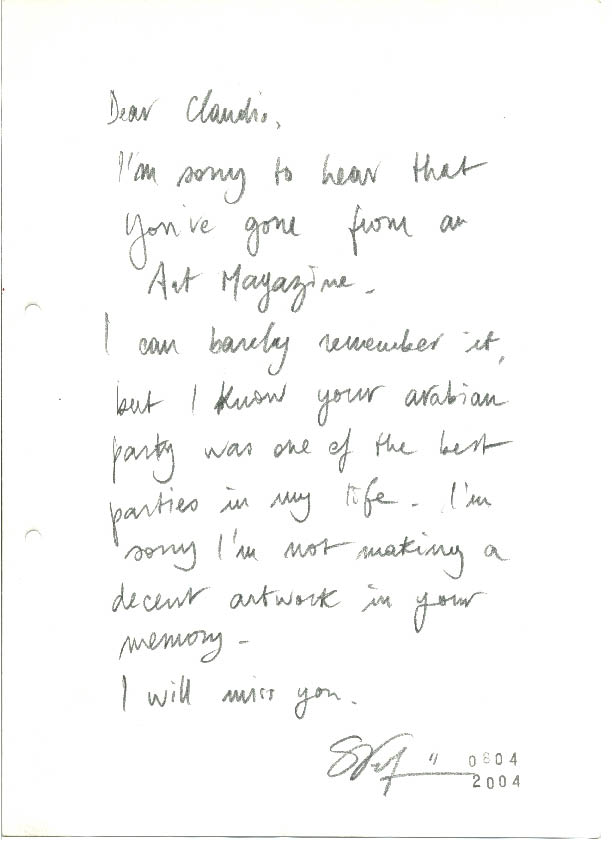 Dear Claudio,
I'm sorry to hear that
you've gone from an
Art Magazine -
I can barely remember it,
but I know your arabian
party was one of the best
parties in my life - I'm
sorry I'm not making a
decent artwork in your
memory -
I will miss you.
" 0804
2004